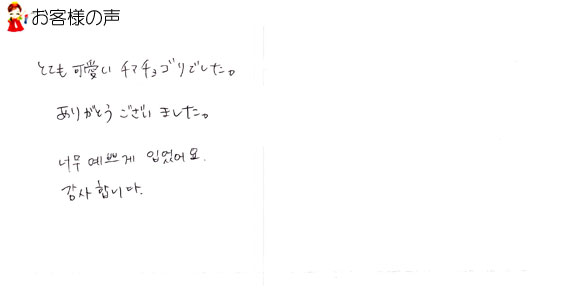 お客様の声
とても可愛いチマチョゴリでした。
ありがとうございました。
너무 예쁘게 입었어요.
감사합니다.